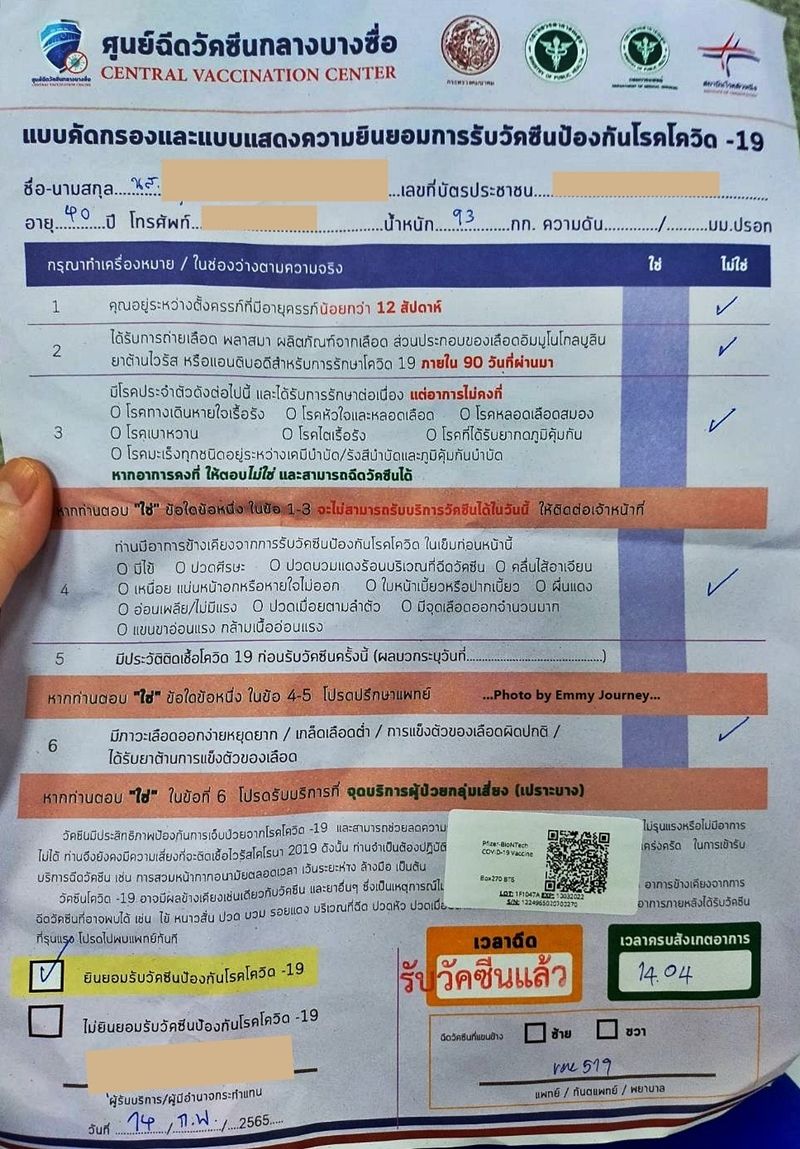 ศูนย์ฉีดวัคซีนกลางบางซื่อ
CENTRAL VACCINATION CENTER
ศูนย์ฉีดวัคซีนกลางบางซื่อ
กระทรวงคมนาคม
MINISTRY OF PUBLIC HEALTH
DEPARTMENT OF MEDICAL SERVICES
สถาบันโรคผิวหนัง
INSTITUTE OF DERMATOLOGY
แบบคัดกรองและแบบแสดงความยินยอมการรับวัคซีนป้องกันโรคโควิด -19
ชื่อ-นามสกุล.....นส. .....เลขที่บัตรประชาชน.....
อายุ.....40.....ปี โทรศัพท์..........น้ำหนัก.....93.....กก. ความดัน........../..........มม.ปรอท
กรุณาทำเครื่องหมาย / ในช่องว่างตามความจริง ใช่ ไม่ใช่
1 คุณอยู่ระหว่างตั้งครรภ์ที่มีอายุครรภ์น้อยกว่า 12 สัปดาห์ ✓
2 ได้รับการถ่ายเลือด พลาสมา ผลิตภัณฑ์จากเลือด ส่วนประกอบของเลือดอิมมูโนโกลบูลิน ✓
ยาต้านไวรัส หรือแอนติบอดีสำหรับการรักษาโควิด 19 ภายใน 90 วันที่ผ่านมา
3 มีโรคประจำตัวดังต่อไปนี้ และได้รับการรักษาต่อเนื่อง แต่อาการไม่คงที่ ✓
O โรคทางเดินหายใจเรื้อรัง O โรคหัวใจและหลอดเลือด O โรคหลอดเลือดสมอง
O โรคเบาหวาน O โรคไตเรื้อรัง O โรคที่ได้รับยากดภูมิคุ้มกัน
O โรคมะเร็งทุกชนิดอยู่ระหว่างเคมีบำบัด/รังสีบำบัดและภูมิคุ้มกันบำบัด
หากอาการคงที่ ให้ตอบไม่ใช่ และสามารถฉีดวัคซีนได้
หากท่านตอบ "ใช่" ข้อใดข้อหนึ่ง ในข้อ 1-3 จะไม่สามารถรับบริการวัคซีนได้ในวันนี้ ให้ติดต่อเจ้าหน้าที่
4 ท่านมีอาการข้างเคียงจากการรับวัคซีนป้องกันโรคโควิด ในเข็มก่อนหน้านี้ ✓
O มีไข้ O ปวดศีรษะ O ปวดบวมแดงร้อนบริเวณที่ฉีดวัคซีน O คลื่นไส้อาเจียน
O เหนื่อย แน่นหน้าอกหรือหายใจไม่ออก O ใบหน้าเบี้ยวหรือปากเบี้ยว O ผื่นแดง
O อ่อนเพลีย/ไม่มีแรง O ปวดเมื่อยตามลำตัว O มีจุดเลือดออกจำนวนมาก
O แขนขาอ่อนแรง กล้ามเนื้ออ่อนแรง
5 มีประวัติติดเชื้อโควิด 19 ก่อนรับวัคซีนครั้งนี้ (ผลบวกระบุวันที่..............................)
หากท่านตอบ "ใช่" ข้อใดข้อหนึ่ง ในข้อ 4-5 โปรดปรึกษาแพทย์ ...Photo by Emmy Journey...
6 มีภาวะเลือดออกง่ายหยุดยาก / เกล็ดเลือดต่ำ / การแข็งตัวของเลือดผิดปกติ / ✓
ได้รับยาต้านการแข็งตัวของเลือด
หากท่านตอบ "ใช่" ในข้อที่ 6 โปรดรับบริการที่ จุดบริการผู้ป่วยกลุ่มเสี่ยง (เปราะบาง)
วัคซีนมีประสิทธิภาพป้องกันการเจ็บป่วยจากโรคโควิด -19 และสามารถช่วยลดความ ไม่รุนแรงหรือไม่มีอาการ
ไม่ได้ ท่านจึงยังคงมีความเสี่ยงที่จะติดเชื้อไวรัสโคโรนา 2019 ดังนั้น ท่านจำเป็นต้องปฏิบัติ คร่งครัด ในการเข้ารับ
บริการฉีดวัคซีน เช่น การสวมหน้ากากอนามัยตลอดเวลา เว้นระยะห่าง ล้างมือ เป็นต้น
วัคซีนโควิด -19 อาจมีผลข้างเคียงเช่นเดียวกับวัคซีน และยาอื่นๆ ซึ่งเป็นเหตุการณ์ไม่ อาการข้างเคียงจากการ
ฉีดวัคซีนที่อาจพบได้ เช่น ไข้ หนาวสั่น ปวด บวม รอยแดง บริเวณที่ฉีด ปวดหัว ปวดเมื่อย อาการภายหลังได้รับวัคซีน
ที่รุนแรง โปรดไปพบแพทย์ทันที
Pfizer-BioNTech
COVID-19 Vaccine
Box270 BTS
LOT: 1F1047A EXP: 13032022
S/N: 1224965020100270
✓ ยินยอมรับวัคซีนป้องกันโรคโควิด -19
ไม่ยินยอมรับวัคซีนป้องกันโรคโควิด -19
ผู้รับบริการ/ผู้มีอำนาจกระทำแทน
วันที่ .....14...../.....ก.พ...../.....2565.....
เวลาฉีด
รับวัคซีนแล้ว
เวลาครบสังเกตอาการ
14.04
ฉีดวัคซีนที่แขนข้าง ซ้าย ขวา
519
แพทย์ / ทันตแพทย์ / พยาบาล